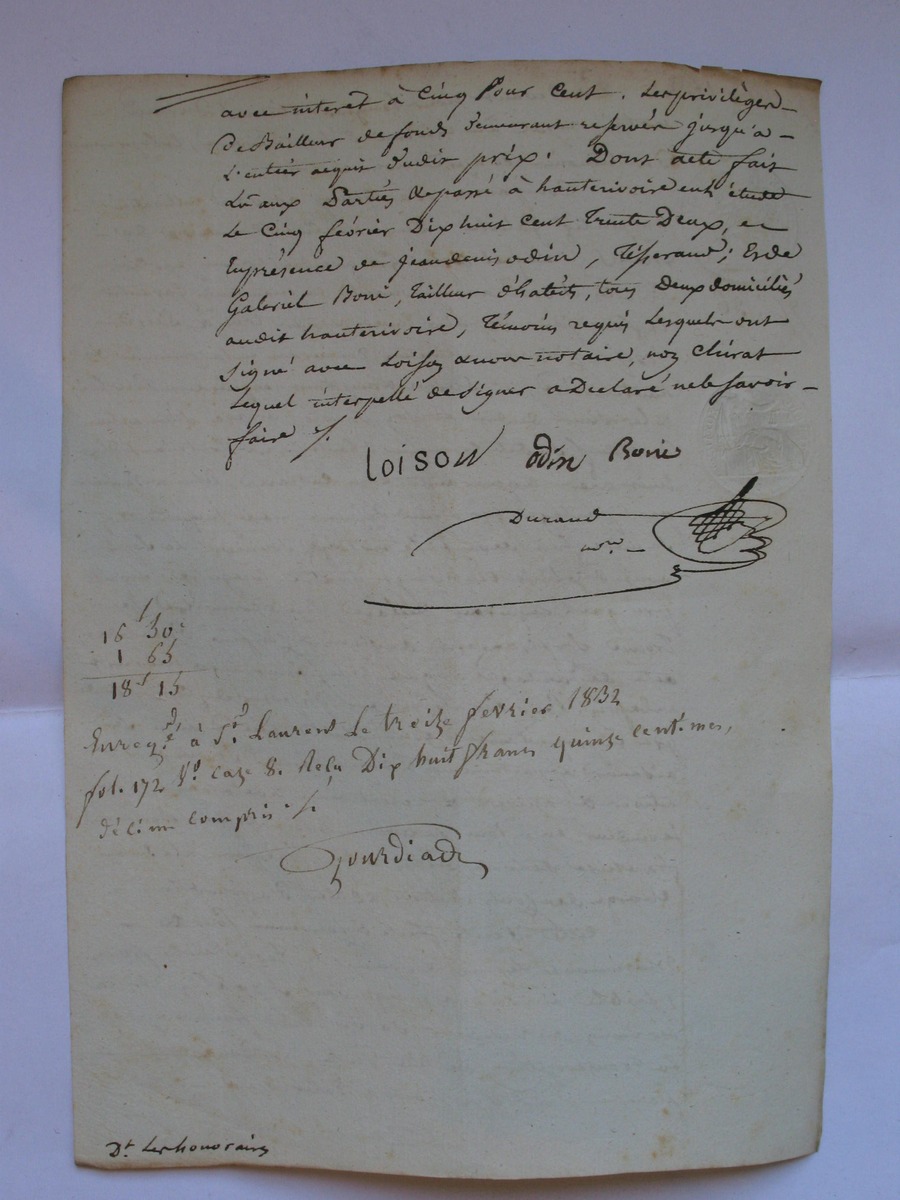 avec interet à Cinq Pour Cent. Les privilèges
De Bailleur de fonds demeurant reservés jusqu'a
L'entier acquit dudit prix. Dont acte fait
Lu aux Parties & passé à hauterivoire en l'étude
Le Cinq février Dix huit cent Trente Deux, en
En présence de Jean denis odin, Tisserand; Et de
Gabriel Borie, Tailleur d'habits, tous Deux domiciliés
audit hauterivoire, Témoins requis Lesquels ont
Signé avec Loison & nous notaire, non Chirat
Lequel interpellé de Signer a Declaré ne le Savoir
faire ./.
Loison odin Borie
Durand
nre
16 f 50 c
1 65
18 f 15
Enregtré à St Laurent Le treize fevrier 1832
fol. 172 Vo case 8. Recu Dix huit francs quinze centimes,
décime compris ./.
Gourdiat
Dt Les honoraires